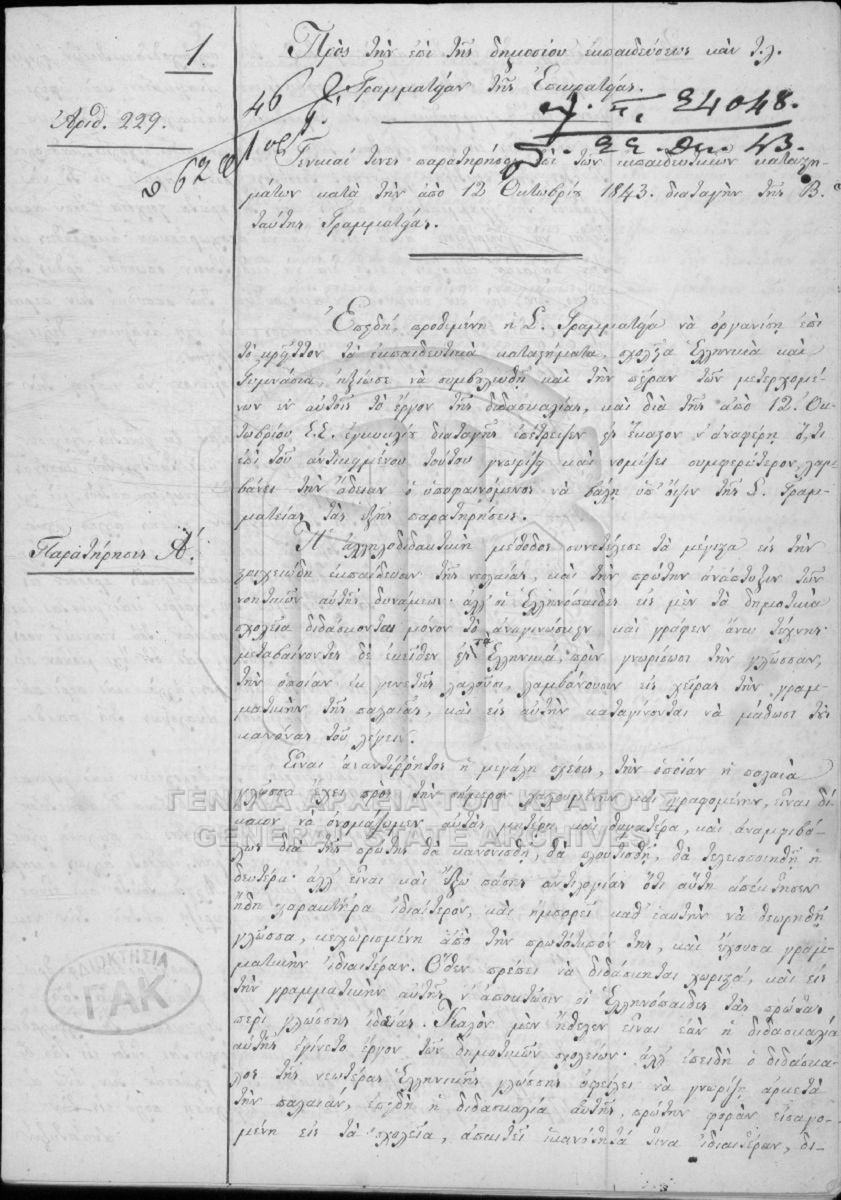 1.
Πρὸς τὴν ἐπὶ τῆς δημοσίου ἐκπαιδεύσεως καὶ τ.λ.
Γραμματείαν τῆς Ἐπικρατείας.
Ἀριθ. 229.
46
24048.
22. Δεκ. 43.
628
Γενικαί τινες παρατηρήσεις ἐπὶ τῶν ἐκπαιδευτικῶν καταστη-
μάτων κατὰ τὴν ἀπὸ 12 Ὀκτωβρίου 1843. διαταγὴν τῆς Β.
ταύτης Γραμματείας.
Ἐπειδὴ προθεμένη ἡ Σ. Γραμματεία νὰ ὀργανίσῃ ἐπὶ
τὸ κρεῖττον τὰ ἐκπαιδευτικὰ καταστήματα, σχολεῖα Ἑλληνικὰ καὶ
Γυμνάσια, ἠξίωσε νὰ συμβουλευθῇ καὶ τὴν πεῖραν τῶν μετερχομέ-
νων ἐν αὐτοῖς τὸ ἔργον τῆς διδασκαλίας, καὶ διὰ τῆς ἀπὸ 12 Ὀκ-
τωβρίου ἐ.ἔ. ἐγκυκλίου διαταγῆς ἐπέτρεψεν εἰς ἕκαστον ν' ἀναφέρῃ ὅ,τι
ἐπὶ τοῦ ἀντικειμένου τούτου γνωρίζει καὶ νομίζει συμφερώτερον, λαμ-
βάνει τὴν ἄδειαν ὁ ὑποφαινόμενος νὰ βάλῃ ὑπ' ὄψιν τῆς Σ. Γραμ-
ματείας τὰς ἑξῆς παρατηρήσεις.
Παρατήρησις Α΄.
Ἡ ἀλληλοδιδακτικὴ μέθοδος συνετέλεσε τὰ μέγιστα εἰς τὴν
στοιχειώδη ἐκπαίδευσιν τῆς νεολαίας, καὶ τὴν πρώτην ἀνάπτυξιν τῶν
νοητικῶν αὐτῆς δυνάμεων· ἀλλ' οἱ Ἑλληνόπαιδες εἰς μὲν τὰ δημοτικὰ
σχολεῖα διδάσκονται μόνον τὸ ἀναγινώσκειν καὶ γράφειν ἄνευ τέχνης·
μεταβαίνοντες δὲ ἐκεῖθεν εἰς τὰ Ἑλληνικά, πρὶν γνωρίσωσι τὴν γλῶσσαν,
τὴν ὁποίαν ἐκ γενετῆς λαλοῦσι, λαμβάνουσιν εἰς χεῖρας τὴν γραμ-
ματικὴν τῆς παλαιᾶς, καὶ εἰς αὐτὴν καταγίνονται νὰ μάθωσι τοὺς
κανόνας τοῦ λέγειν.
Εἶναι ἀναντίρρητος ἡ μεγάλη σχέσις, τὴν ὁποίαν ἡ παλαιὰ
γλῶσσα ἔχει πρὸς τὴν σήμερον λαλουμένην καὶ γραφομένην, εἶναι δί-
καιον νὰ ὀνομάζωμεν αὐτὰς μητέρα καὶ θυγατέρα, καὶ ἀναμφιβό-
λως διὰ τῆς πρώτης θὰ κανονισθῇ, θὰ πλουτισθῇ, θὰ τελειοποιηθῇ ἡ
δευτέρα· ἀλλ' εἶναι καὶ ἔξω πάσης ἀντιλογίας ὅτι αὕτη ἀπέκτησεν
ἤδη χαρακτῆρα ἰδιαίτερον, καὶ ἠμπορεῖ καθ' ἑαυτὴν νὰ θεωρηθῇ
γλῶσσα, κεχωρισμένη ἀπὸ τὴν πρωτότυπόν της, καὶ ἔχουσα γραμ-
ματικὴν ἰδιαιτέραν. Ὅθεν πρέπει νὰ διδάσκηται χωριστά, καὶ εἰς
τὴν γραμματικὴν αὐτῆς ν' ἀποκτῶσιν οἱ Ἑλληνόπαιδες τὰς πρώτας
περὶ γλώσσης ἰδέας. Καλὸν μὲν ἤθελεν εἶναι ἐὰν ἡ διδασκαλία
αὐτῆς ἐγίνετο ἔργον τῶν δημοτικῶν σχολείων· ἀλλ' ἐπειδὴ ὁ διδάσκα-
λος τῆς νεωτέρας Ἑλληνικῆς γλώσσης ὀφείλει νὰ γνωρίζῃ ἀρκετὰ
τὴν παλαιάν, ἐπειδὴ ἡ διδασκαλία αὐτῆς, πρώτην φορὰν εἰσαγο-
μένη εἰς τὰ σχολεῖα, ἀπαιτεῖ ἱκανότητά τινα ἰδιαιτέραν, δι-
ΓΕΝΙΚΑ ΑΡΧΕΙΑ ΤΟΥ ΚΡΑΤΟΥΣ
GENERAL STATE ARCHIVES
ΙΔΙΟΚΤΗΣΙΑ
ΓΑΚ